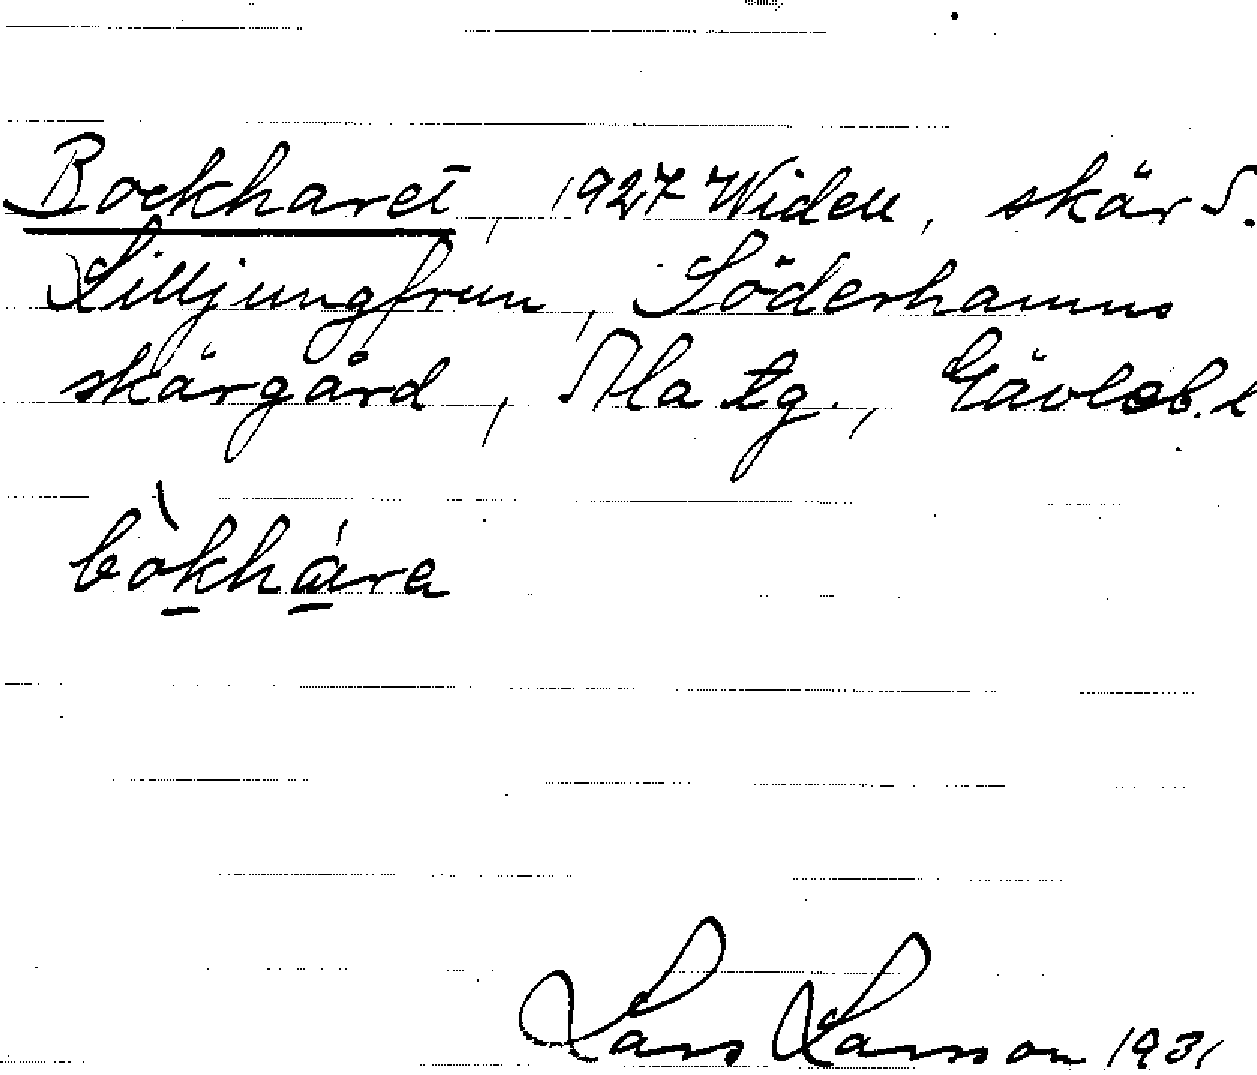 Bockharet, 1927 Widell, skär S.
Lilljungfrun, Söderhamns
skärgård, Ala tg., Gävleb. l
bòkhára
Lars Larsson 1931